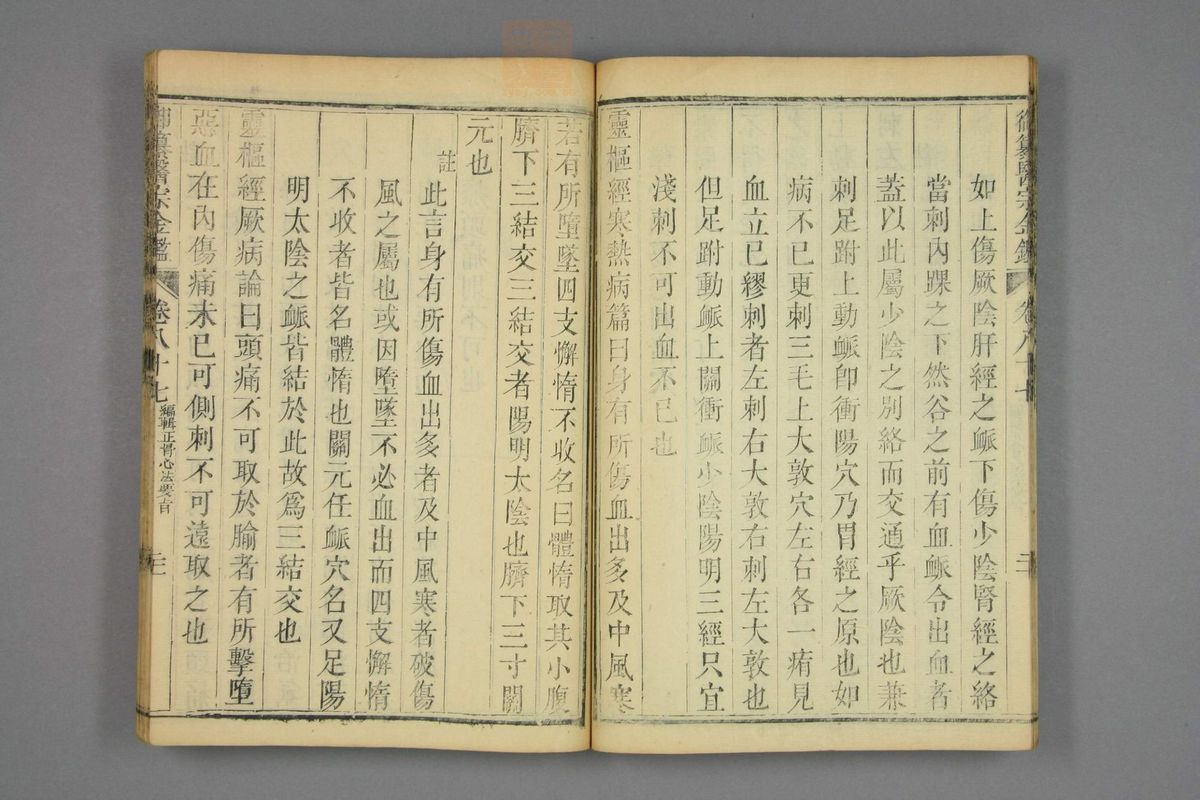 御纂醫宗金鑑 卷八十七
如上傷厥陰肝經之脈下傷少陰腎經之絡
當刺內踝之下然谷之前有血脈令出血者
蓋以此屬少陰之別絡而交通乎厥陰也兼
刺足跗上動脈卽衝陽穴乃胃經之原也如
病不已更刺三毛上大敦穴左右各一痏見
血立已繆刺者左刺右大敦右刺左大敦也
但足跗動脈上關衝脈少陰陽明三經只宜
淺刺不可出血不已也
靈樞經寒熱病篇曰身有所傷血出多及中風寒
若有所墮墜四支懈惰不收名曰體惰取其小腹
臍下三結交三結交者陽明太陰也臍下三寸關
元也
註
此言身有所傷血出多者及中風寒者破傷
風之屬也或因墮墜不必血出而四支懈惰
不收者皆名體惰也關元任脈穴名又足陽
明太陰之脈皆結於此故爲三結交也
靈樞經厥病論曰頭痛不可取於腧者有所擊墮
惡血在內傷痛未已可側刺不可遠取之也
御纂醫宗金鑑 卷八十七 編輯正骨心法要旨